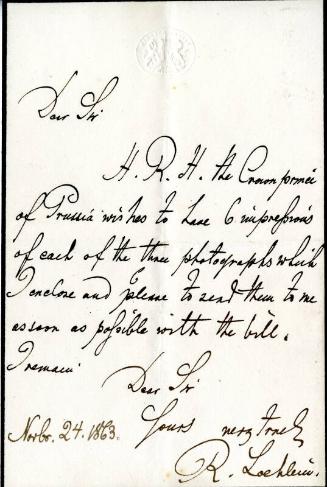 Dear Sir
H. R. H. the Crown prince
of Prussia wishes to have 6 impressions
of each of the three photographs which
I enclose and please to send them to me
as soon as possible with the bill.
I remain
Dear Sir
Yours very truly
Novbr. 24. 1863.
R.